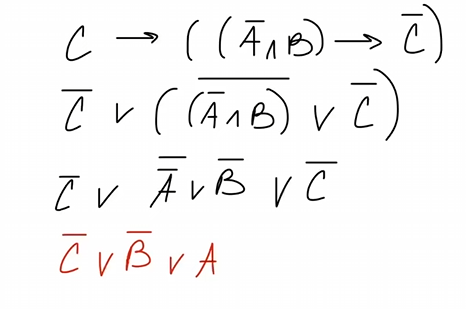 C → ((A̅ ∧ B) → C̅)
C̅ ∨ ((A̅̅ ̅∧̅ ̅B̅) ∨ C̅)
C̅ ∨ A̿ ∨ B̅ ∨ C̅
C̅ ∨ B̅ ∨ A